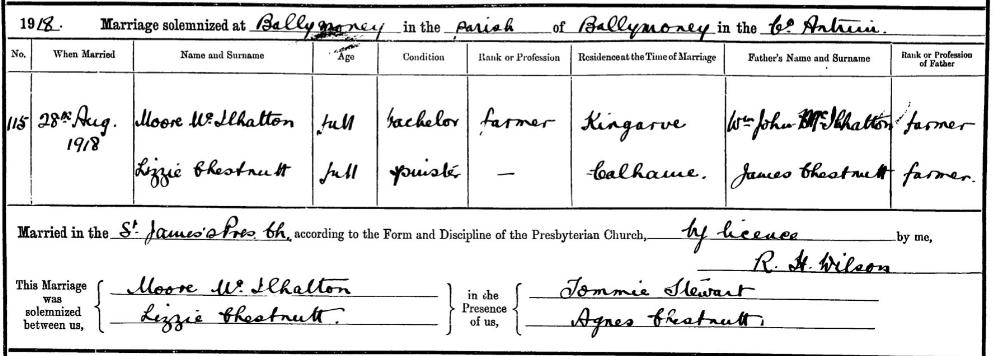 1918. Marriage solemnized at Ballymoney in the parish of Ballymoney in the Co. Antrim.
No. When Married Name and Surname Age Condition Rank or Profession Residence at the Time of Marriage Father's Name and Surname Rank or Profession of Father
115 28th Aug. 1918 Moore McIlhatton full bachelor farmer Kingarve Wm John McIlhatton farmer
Lizzie Chestnutt full spinster — Calhame. James Chestnutt farmer.
Married in the St. James's Pres. Ch. according to the Form and Discipline of the Presbyterian Church, by licence by me,
R. H. Wilson
This Marriage was solemnized between us, Moore McIlhatton
Lizzie Chestnutt.
in the Presence of us, Tommie Stewart
Agnes Chestnutt.